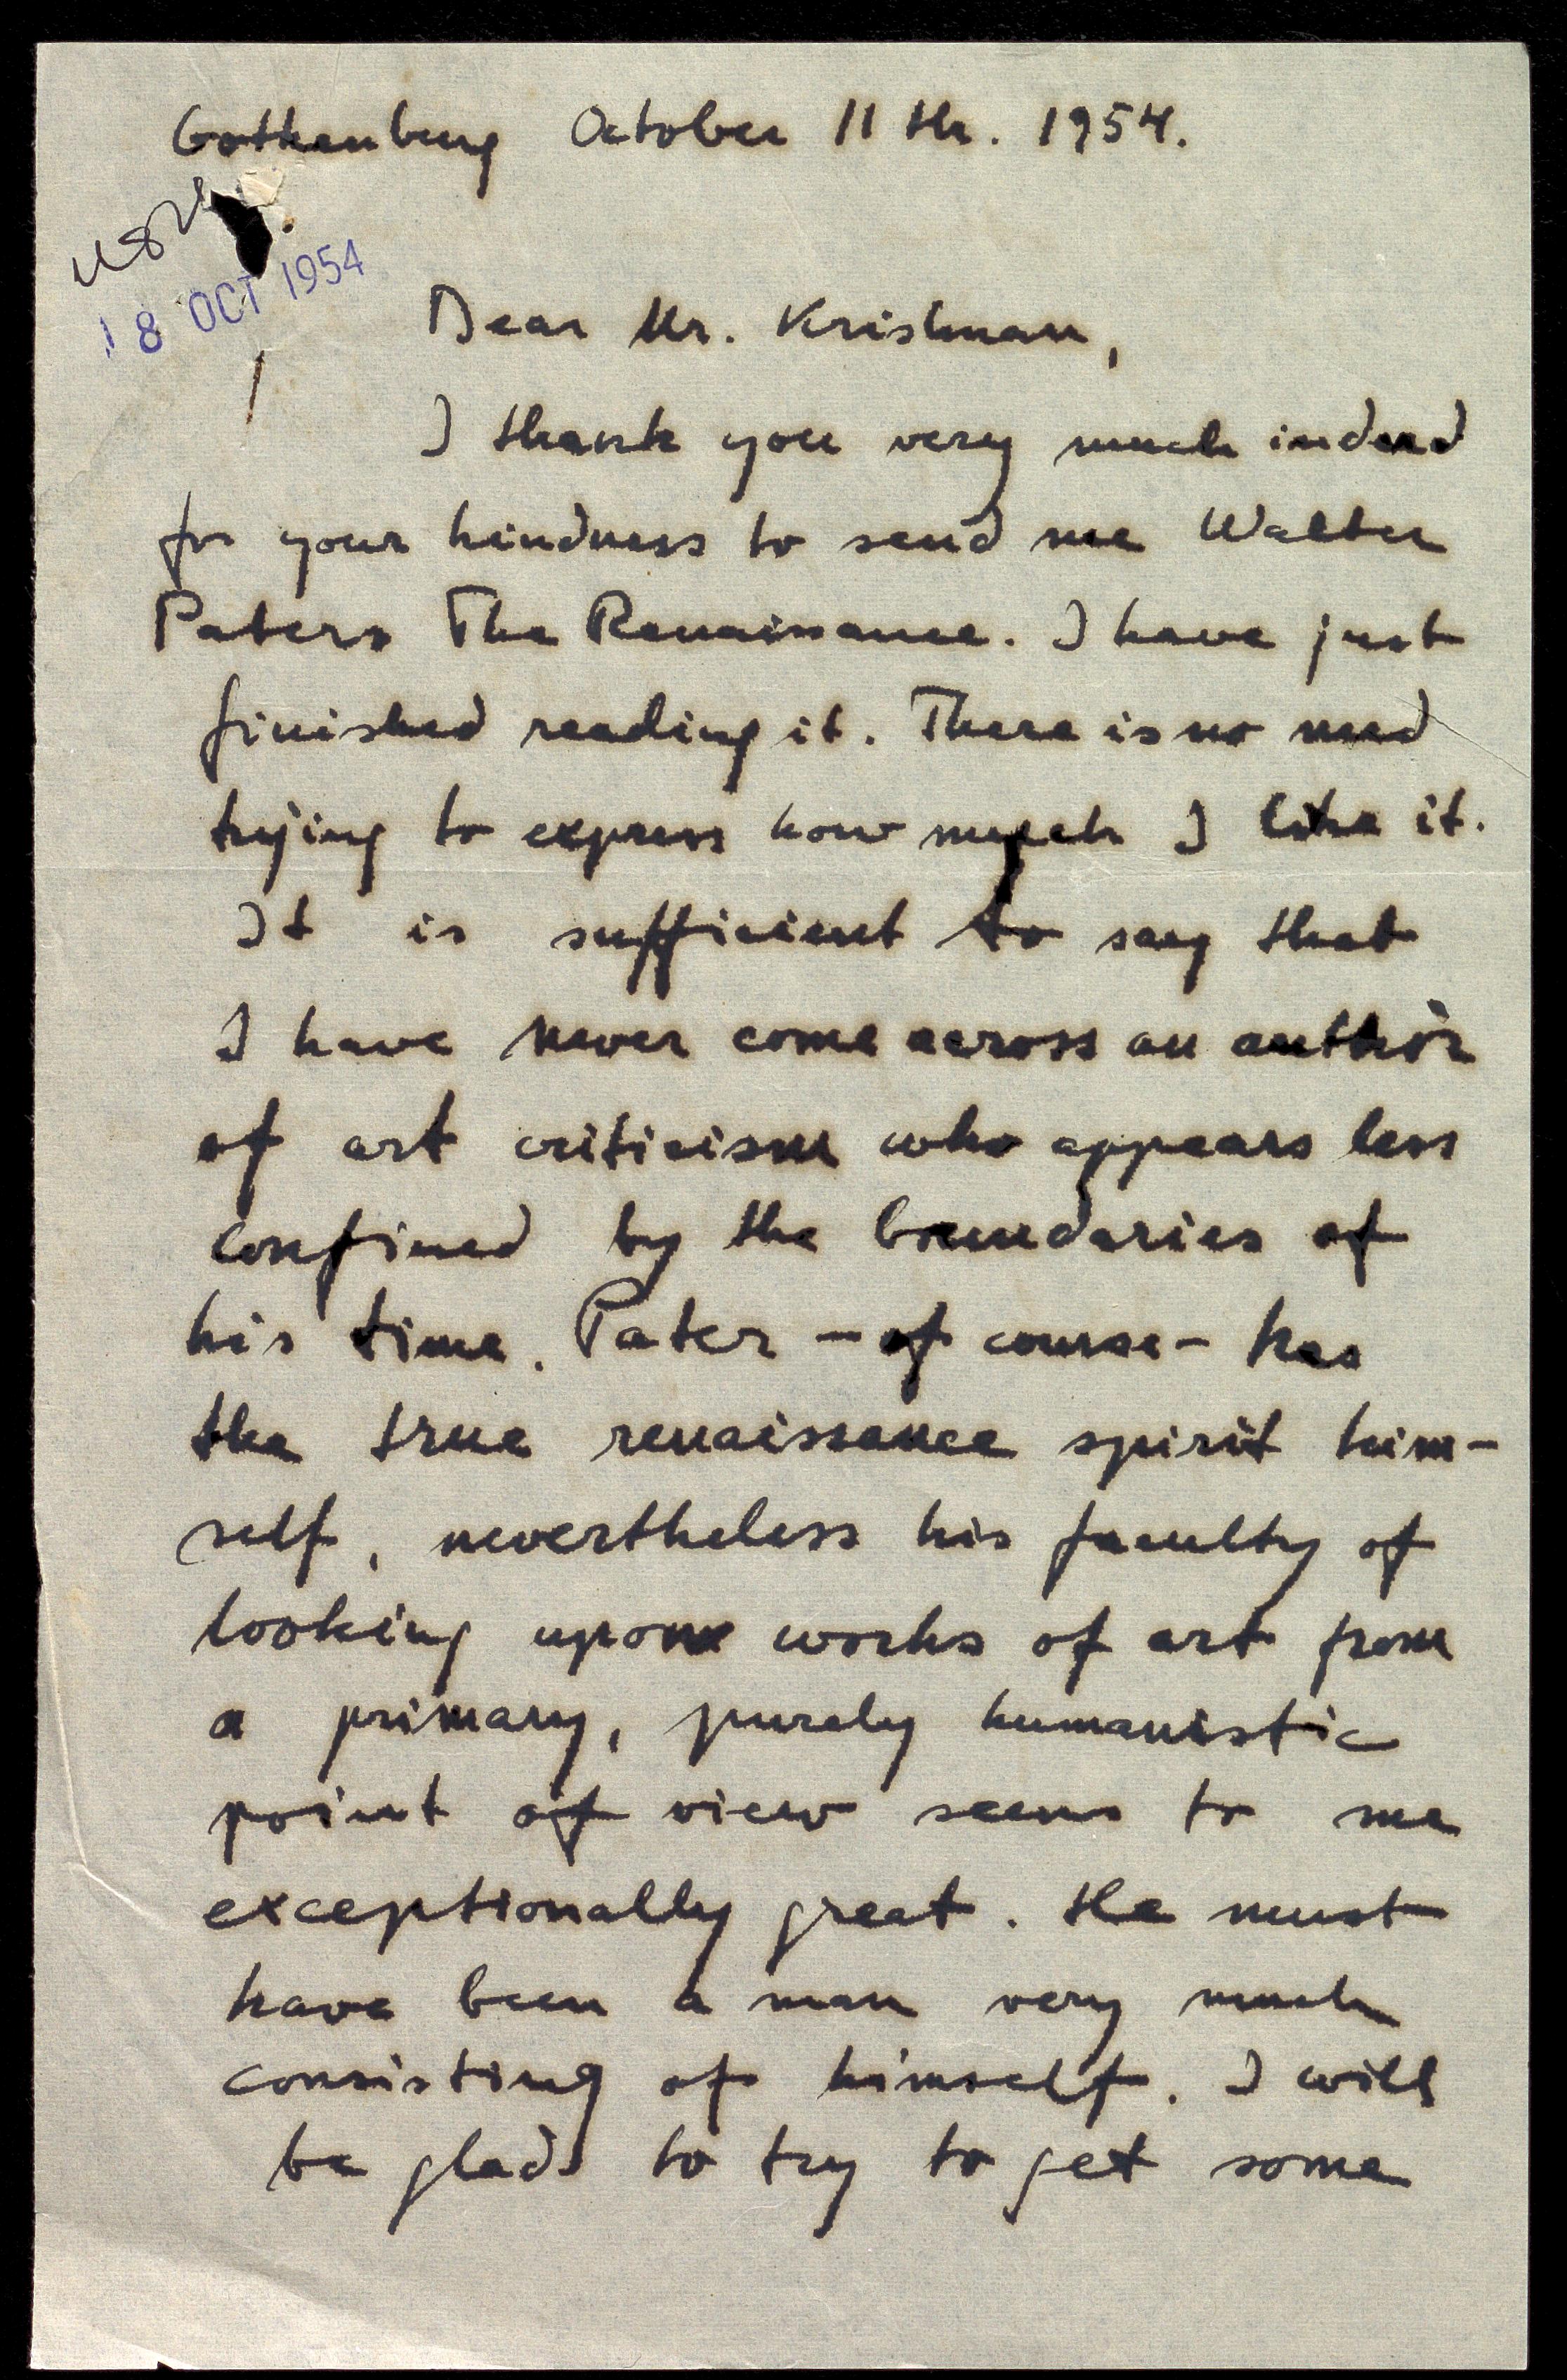 Gothenburg October 11 th. 1954.
18 OCT 1954
Dear Mr. Krishnan,
I thank you very much indeed
for your kindness to send me Walter
Paters The Renaissance. I have just
finished reading it. There is no need
trying to express how much I like it.
It is sufficient to say that
I have never come across an author
of art criticism who appears less
confined by the boundaries of
his time. Pater – of course – has
the true renaissance spirit him-
self, nevertheless his faculty of
looking upon works of art from
a primary, purely humanistic
point of view seems to me
exceptionally great. He must
have been a man very much
consisting of himself. I will
be glad to try to get some